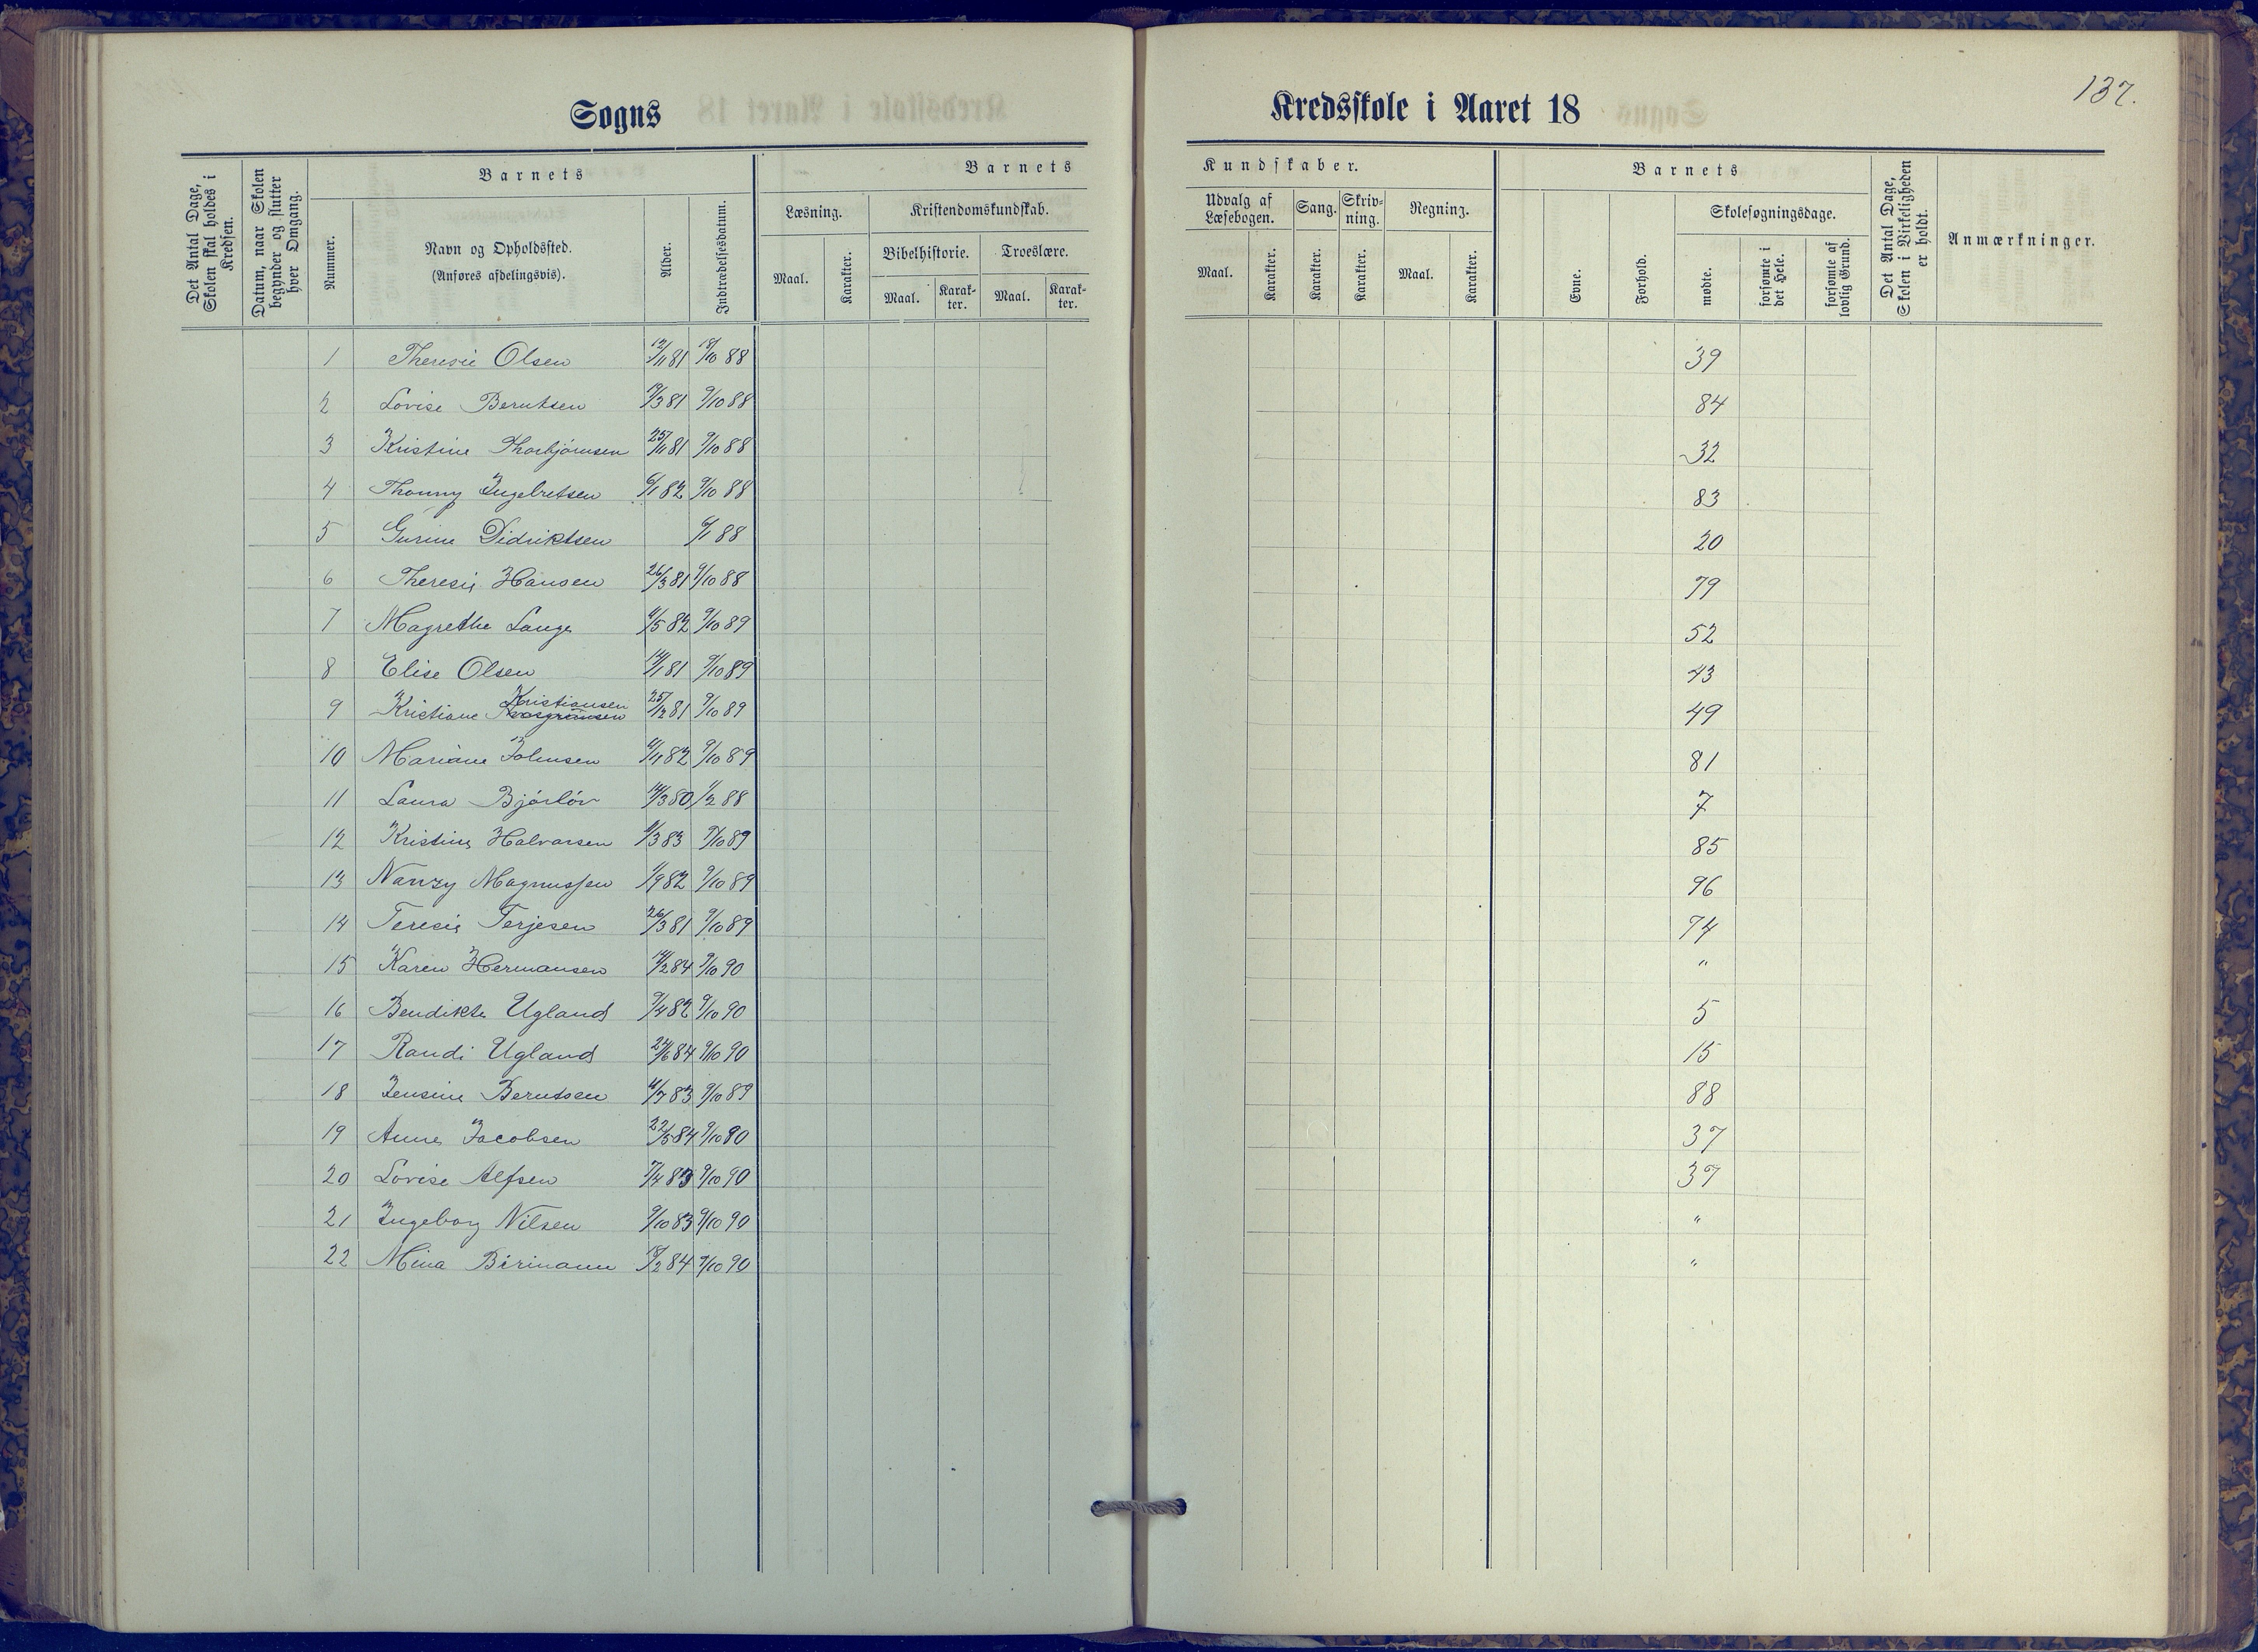 137.
Sogns Kredsskole i Aaret 18
Det Antal Dage, Skolen skal holdes i Kredsen.
Datum, naar Skolen begynder og slutter hver Omgang.
Barnets
Nummer.
Navn og Opholdssted.
(Anføres afdelingsvis).
Alder.
Indtrædelsesdatum.
Barnets Kundskaber.
Læsning.
Maal.
Karakter.
Kristendomskundskab.
Bibelhistorie.
Maal.
Karak-
ter.
Troeslære.
Maal.
Karak-
ter.
Udvalg af
Læsebogen.
Maal.
Karakter.
Sang.
Karakter.
Skriv-
ning.
Karakter.
Regning.
Maal.
Karakter.
Barnets
Evne.
Forhold.
Skolesøgningsdage.
mødte.
forsømte i det Hele.
forsømte af lovlig Grund.
Det Antal Dage, Skolen i Virkeligheden er holdt.
Anmærkninger.
1 Theresie Olsen 12/11 81 18/10 88 39
2 Lovise Berntsen 19/3 81 9/10 88 84
3 Kristine Thorbjørnsen 25/11 81 9/10 88 32
4 Thonny Ingebretsen 6/1 82 9/10 88 83
5 Gurine Didriktsen 6/1 88 20
6 Theresie Hansen 26/3 81 9/10 88 79
7 Magrethe Lange 4/5 82 9/10 89 52
8 Elise Olsen 14/1 81 9/10 89 43
9 Kristiane Kristiansen 25/12 81 9/10 89 49
10 Mariane Johnsen 4/11 82 9/10 89 81
11 Laura Bjørløv 14/3 80 1/2 88 7
12 Kristine Halvorsen 6/3 83 9/10 89 85
13 Nanzy Magnussen 1/9 82 9/10 89 96
14 Teresie Terjesen 26/3 81 9/10 89 74
15 Karen Hermansen 14/2 84 9/10 90 "
16 Bendikte Ugland 9/4 82 9/10 90 5
17 Randi Ugland 24/6 84 9/10 90 15
18 Jensine Berntsen 4/7 83 9/10 89 88
19 Anne Jacobsen 22/5 84 9/10 90 37
20 Lovise Alfsen 7/4 83 9/10 90 37
21 Ingeborg Nilsen 9/10 83 9/10 90 "
22 Mina Birmann 18/2 84 9/10 90 "